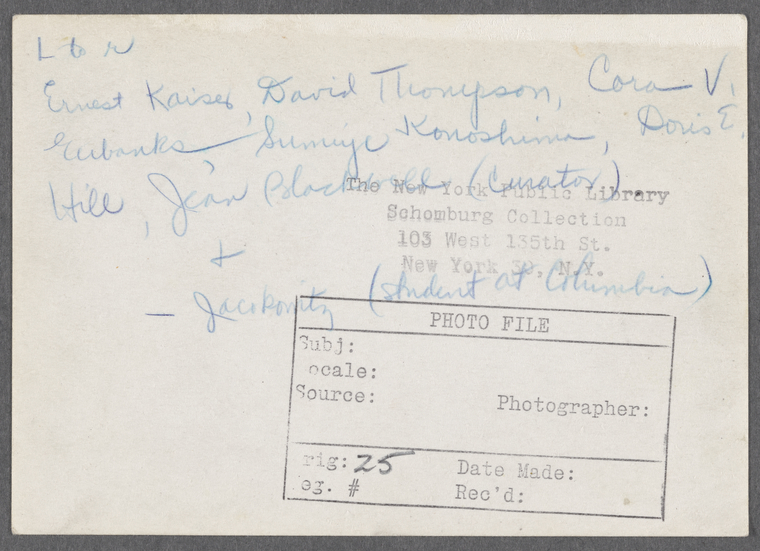 L to R
Ernest Kaiser, David Thompson, Cora V.
Eubanks, Sumiye Konoshima, Doris E.
Hill, Jean Blackwell (Curator)
+
— Jacokowitz (student at Columbia)
The New York Public Library
Schomburg Collection
103 West 135th St.
New York 30, N.Y.
PHOTO FILE
Subj:
ocale:
Source:
Photographer:
rig: 25
Date Made:
eg. #
Rec'd: